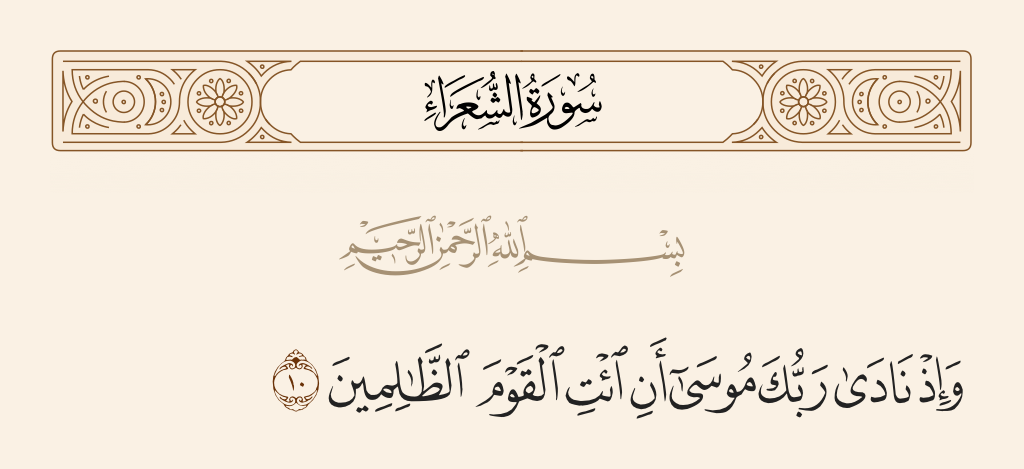 سُورَةُ الشُّعَرَاءِ
بِسْمِ ٱللَّهِ ٱلرَّحْمَٰنِ ٱلرَّحِيمِ
وَإِذْ نَادَىٰ رَبُّكَ مُوسَىٰٓ أَنِ ٱئْتِ ٱلْقَوْمَ ٱلظَّٰلِمِينَ ١٠